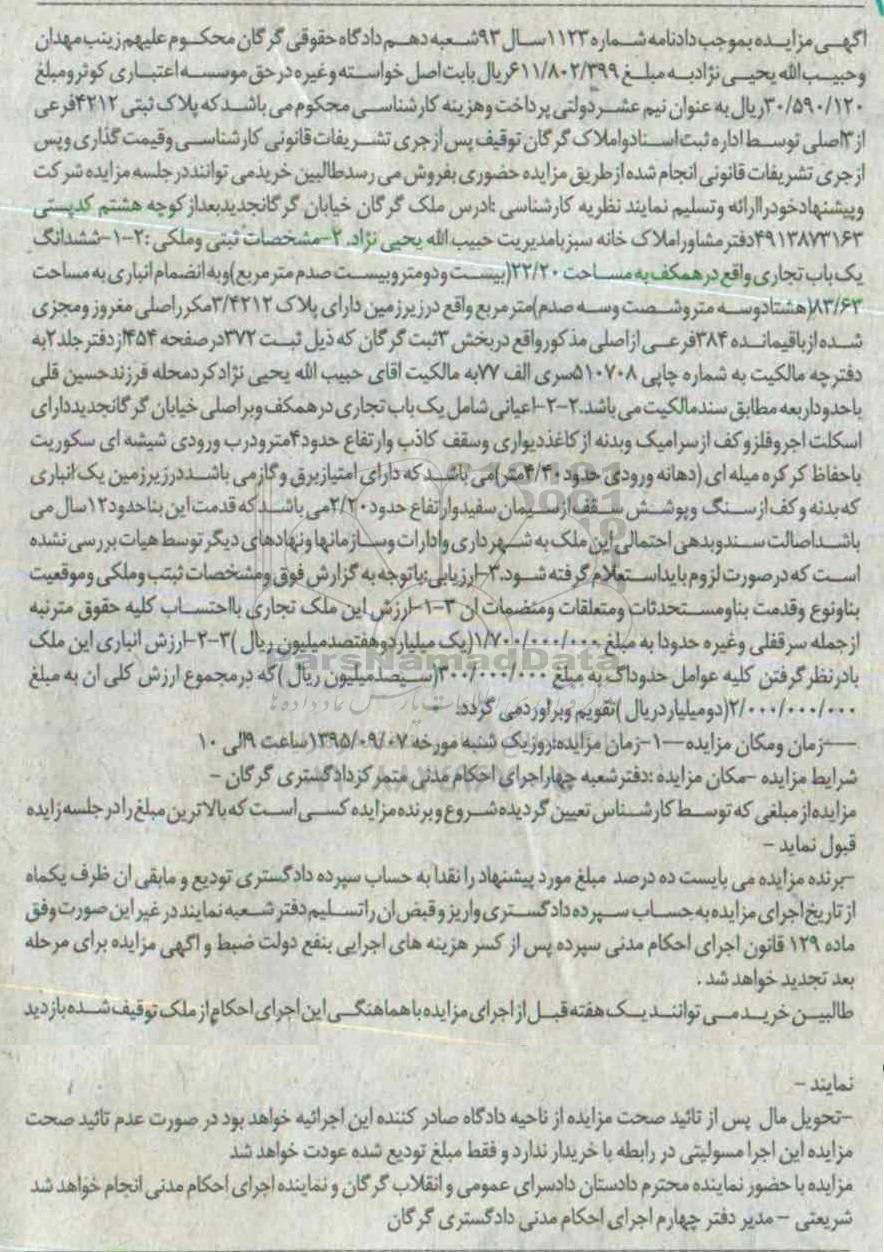 آگهی مزایده بموجب دادنامه شماره ۱۱۲۳سال ۹۳شعبه دهم دادگاه حقوقی گرگان محکوم علیهم زینب مهدان
وحبیب الله یحیی نژادبه مبلغ ۶۱۱/۸۰۲/۳۹۹ریال بابت اصل خواسته وغیره درحق موسسه اعتباری کوثرومبلغ
۳۰/۵۹۰/۱۲۰ریال به عنوان نیم عشردولتی پرداخت وهزینه کارشناسی محکوم می باشدکه پلاک ثبتی ۴۲۱۲فرعی
از۳اصلی توسط اداره ثبت اسنادواملاک گرگان توقیف پس ازجری تشریفات قانونی کارشناسی وقیمت گذاری وپس
ازجری تشریفات قانونی انجام شده ازطریق مزایده حضوری بفروش می رسدطالبین خریدمی تواننددرجلسه مزایده شرکت
وپیشنهادخودراارائه وتسلیم نمایند نظریه کارشناسی :ادرس ملک گرگان خیابان گرگانجدیدبعدازکوچه هشتم کدپستی
۴۹۱۳۸۷۳۱۶۳دفترمشاوراملاک خانه سبزبامدیریت حبیب الله یحیی نژاد. ۲-مشخصات ثبتی وملکی :۲-۱-ششدانگ
یک باب تجاری واقع درهمکف به مساحت ۲۲/۲۰(بیست ودومتروبیست صدم مترمربع)وبه انضمام انباری به مساحت
۸۳/۶۳(هشتادوسه متروشصت وسه صدم)مترمربع واقع درزیرزمین دارای پلاک ۳/۴۲۱۲مکرراصلی مفروز ومجزی
شده ازباقیمانده ۳۸۴فرعی ازاصلی مذکورواقع دربخش ۳ثبت گرگان که ذیل ثبت ۳۷۲درصفحه ۴۵۴ازدفترجلد۲به
دفترچه مالکیت به شماره چاپی ۵۱۰۷۰۸سری الف ۷۷به مالکیت اقای حبیب الله یحیی نژادکردمحله فرزندحسین قلی
باحدوداربعه مطابق سندمالکیت می باشد.۲-۲-اعیانی شامل یک باب تجاری درهمکف وبراصلی خیابان گرگانجدیددارای
اسکلت اجروفلزوکف ازسرامیک وبدنه ازکاغذدیواری وسقف کاذب وارتفاع حدود۴مترودرب ورودی شیشه ای سکوریت
باحفاظ کرکره میله ای (دهانه ورودی حدود۴/۴۰متر)می باشدکه دارای امتیازبرق وگازمی باشددرزیرزمین یک انباری
که بدنه وکف ازسنگ وپوشش سقف ازسیمان سفیدوارتفاع حدود۲/۲۰می باشدکه قدمت این بناحدود۱۲سال می
باشداصالت سندوبدهی احتمالی این ملک به شهرداری وادارات وسازمانها ونهادهای دیگرتوسط هیات بررسی نشده
است که درصورت لزوم بایداستعلام گرفته شود.۳-ارزیابی:باتوجه به گزارش فوق ومشخصات ثبتب وملکی وموقعیت
بناونوع وقدمت بناومستحدثات ومتعلقات ومنضمات ان ۳-۱-ارزش این ملک تجاری بااحتساب کلیه حقوق مترتبه
ازجمله سرقفلی وغیره حدودا به مبلغ ۱/۷۰۰/۰۰۰/۰۰۰(یک میلیاردوهفتصدمیلیون ریال )۳-۲-ارزش انباری این ملک
بادرنظرگرفتن کلیه عوامل حدوداگ به مبلغ ۳۰۰/۰۰۰/۰۰۰(سیصدمیلیون ریال )که درمجموع ارزش کلی ان به مبلغ
۲/۰۰۰/۰۰۰/۰۰۰(دومیلیاردریال )تقویم وبراوردمی گردد.
ParsNamadData
---زمان ومکان مزایده---۱-زمان مزایده:روزیک شنبه مورخه ۱۳۹۵/۰۹/۰۷ساعت ۹الی ۱۰
شرایط مزایده -مکان مزایده :دفترشعبه چهاراجرای احکام مدنی متمرکزدادگستری گرگان -
مزایده ازمبلغی که توسط کارشناس تعیین گردیده شروع وبرنده مزایده کسی است که بالاترین مبلغ رادرجلسه زایده
قبول نماید -
-برنده مزایده می بایست ده درصد مبلغ مورد پیشنهاد را نقدا به حساب سپرده دادگستری تودیع و مابقی ان ظرف یکماه
از تاریخ اجرای مزایده به حساب سپرده دادگستری واریز و قبض ان را تسلیم دفتر شعبه نمایند در غیر این صورت وفق
ماده ۱۲۹ قانون اجرای احکام مدنی سپرده پس از کسر هزینه های اجرایی بنفع دولت ضبط و اگهی مزایده برای مرحله
بعد تجدید خواهد شد .
طالبین خرید می توانند یک هفته قبل از اجرای مزایده با هماهنگی این اجرای احکام از ملک توقیف شده بازدید
نمایند -
-تحویل مال پس از تائید صحت مزایده از ناحیه دادگاه صادر کننده این اجرائیه خواهد بود در صورت عدم تائید صحت
مزایده این اجرا مسولیتی در رابطه با خریدار ندارد و فقط مبلغ تودیع شده عودت خواهد شد
مزایده با حضور نماینده محترم دادستان دادسرای عمومی و انقلاب گرگان و نماینده اجرای احکام مدنی انجام خواهد شد
شریعتی - مدیر دفتر چهارم اجرای احکام مدنی دادگستری گرگان